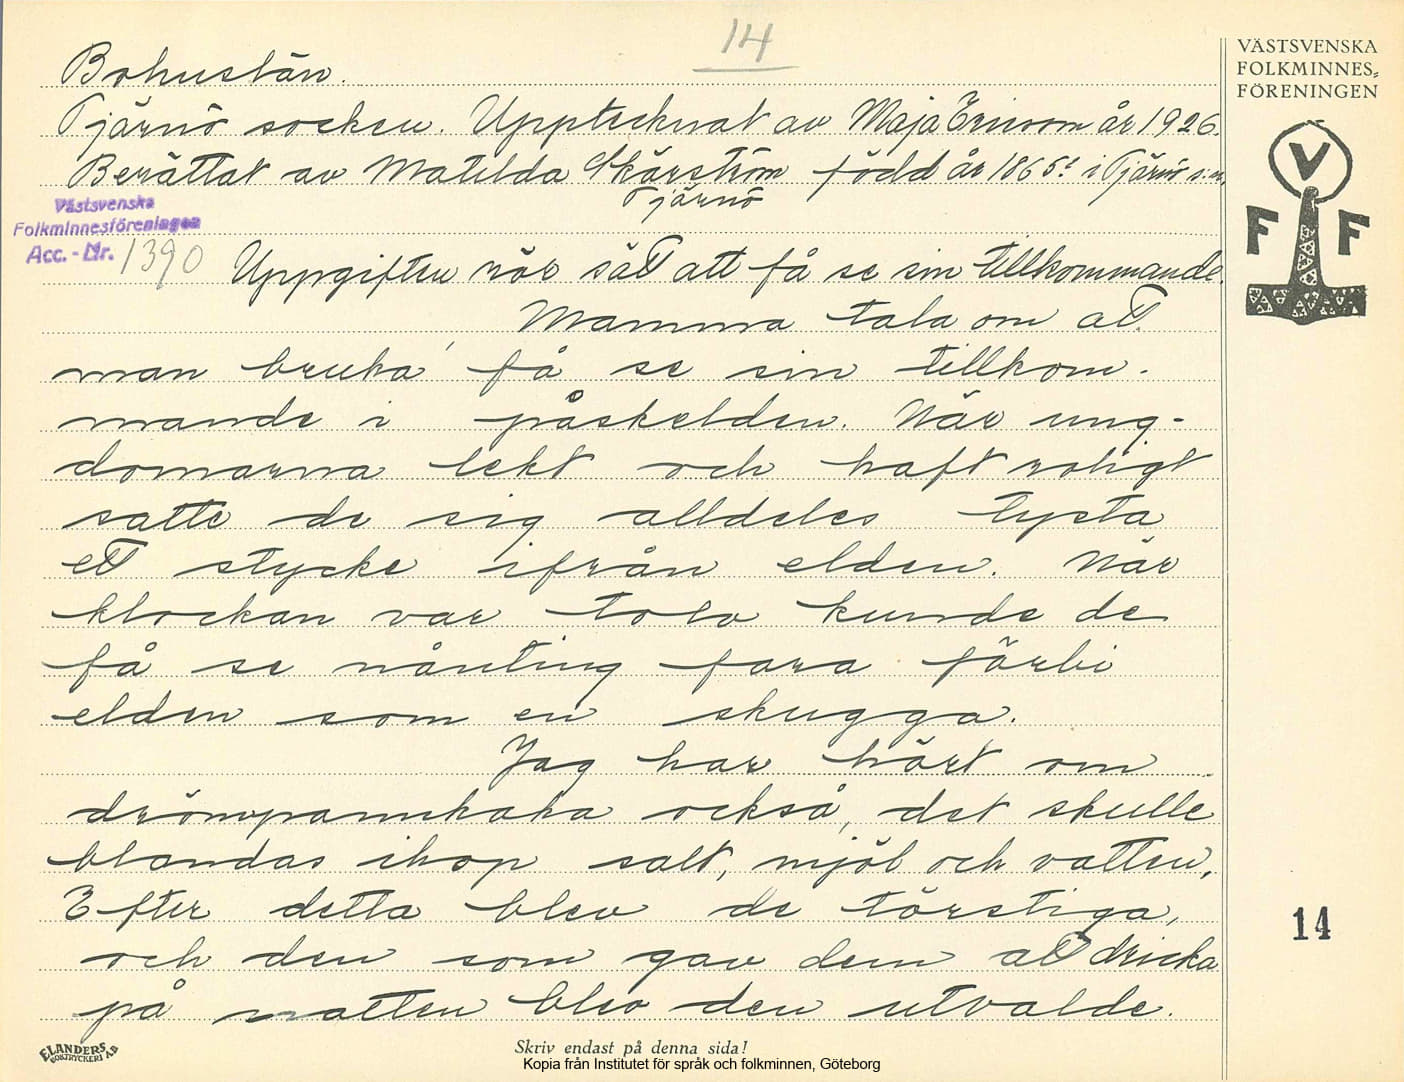 14
VÄSTSVENSKA
FOLKMINNES=
FÖRENINGEN
Bohuslän.
Tjärnö socken. Upptecknat av Maja Ericson år 1926.
Berättat av Matilda Skärström född år 1865 i Tjärnö s:n.
Tjärnö
Västsvenska
Folkminnesföreningen
Acc. - Nr. 1390
V
F F
Uppgiften rör sätt att få se sin tillkommande.
Mamma tala om att
man bruka' få se sin tillkom-
mande i påskelden. När ung-
domarna lekt och haft roligt
satte de sig alldeles tysta
ett stycke ifrån elden. När
klockan var tolv kunde de
få se nånting fara förbi
elden som en skugga.
Jag har hört om
drömpannkaka också, det skulle
blandas ihop salt, mjöl och vatten,
Efter detta blev de törstiga,
och den som gav dem att dricka
på natten blev den utvalde.
14
ELANDERS
BOKTRYCKERI A.B
Skriv endast på denna sida!
Kopia från Institutet för språk och folkminnen, Göteborg